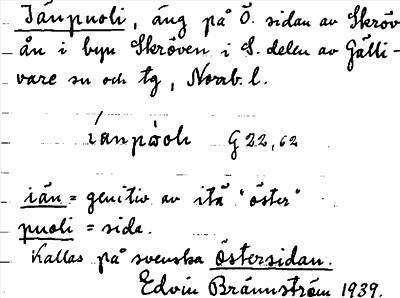 Iänpuoli, äng på Ö. sidan av Skröv
ån i byn Skröven i S. delen av Gälli-
vare sn och tg, Norrb. l.
íanpὰoh G 22,62
iän = genitiv av itä "öster"
puoli = sida.
Kallas på svenska östersidan.
Edvin Brännström 1939.